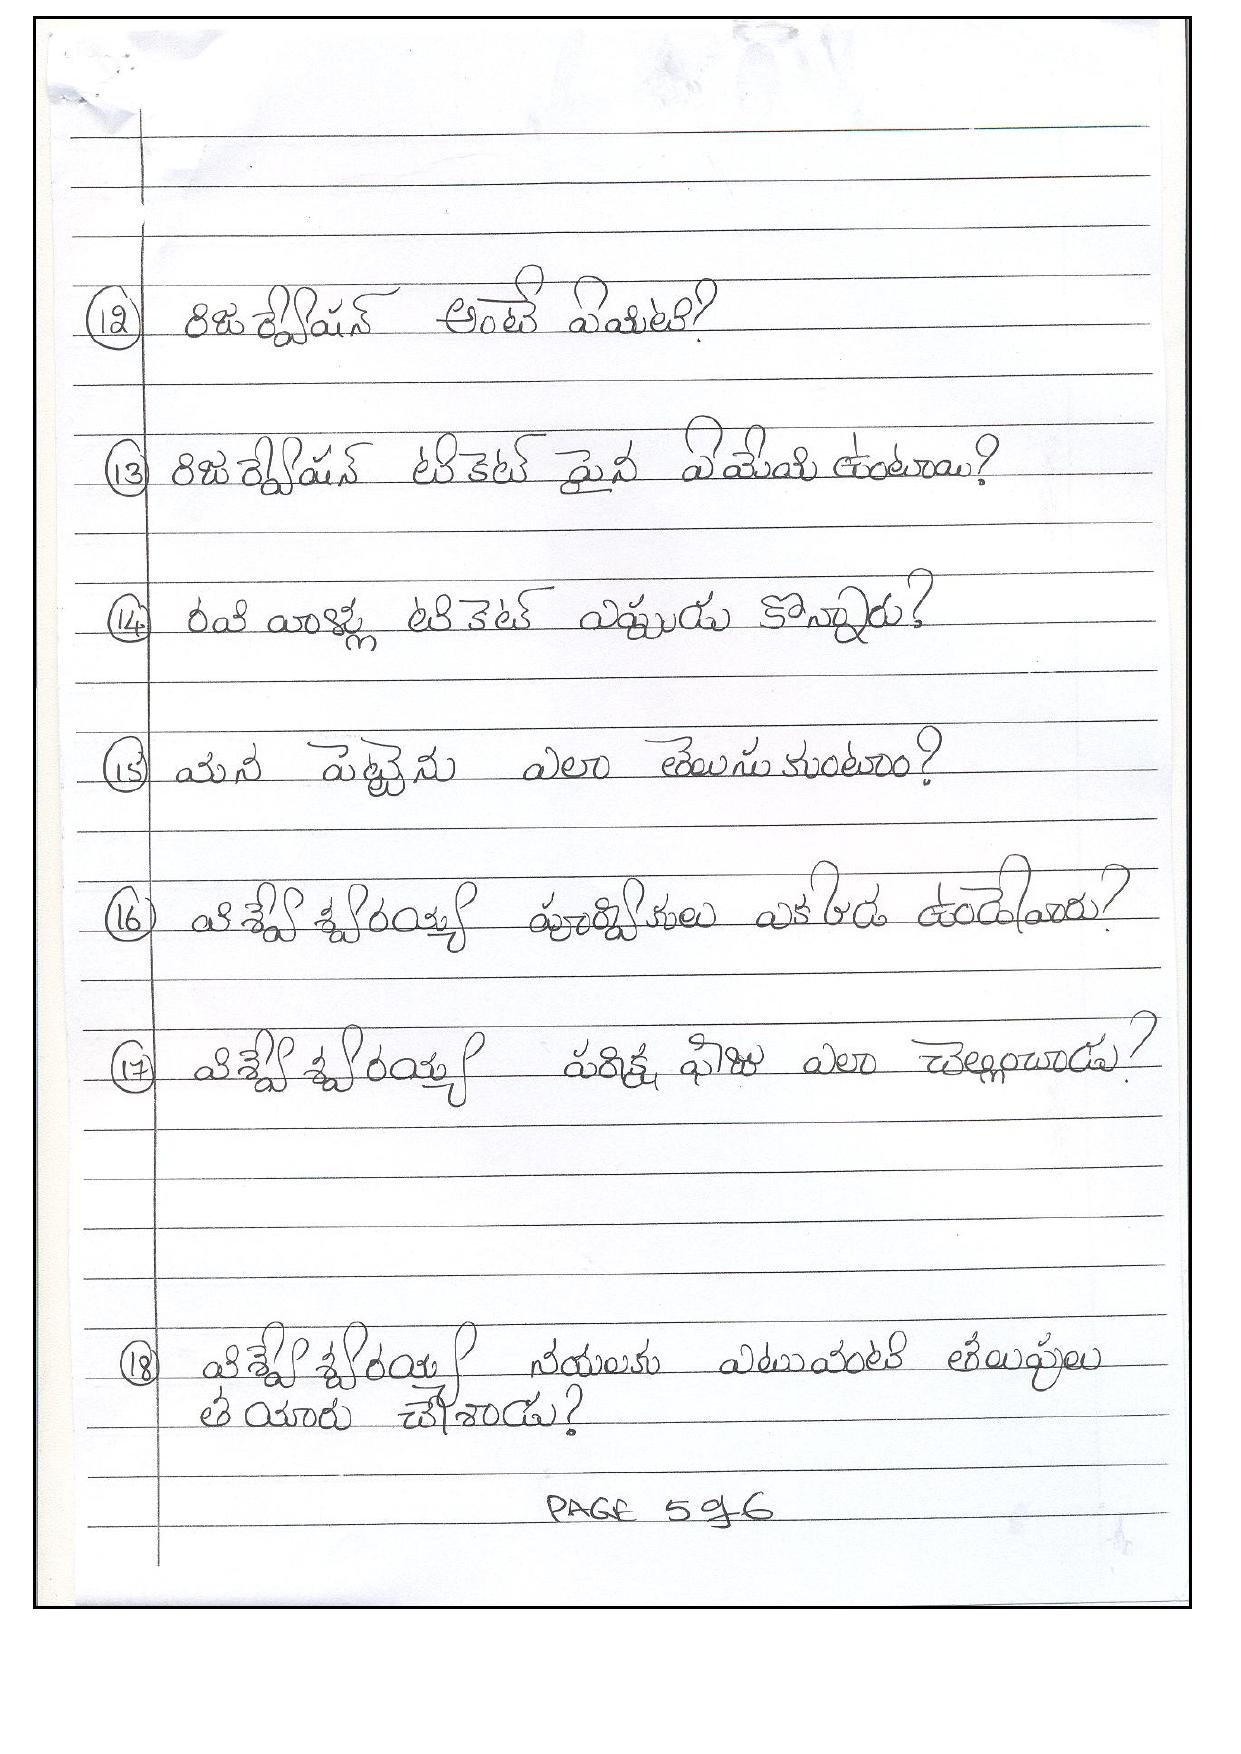 12 రిజర్వేషన్ అంటే ఏమిటి?
13 రిజర్వేషన్ టికెట్ పైన ఏమేమి ఉంటాయి?
14 రవి వాళ్ళు టికెట్ ఎప్పుడు కొన్నారు?
15 మన పెట్టెను ఎలా తెలుసుకుంటాం?
16 విశ్వేశ్వరయ్య పూర్వికులు ఎక్కడ ఉండేవారు?
17 విశ్వేశ్వరయ్య పరిక్ష ఫీజు ఎలా చెల్లించాడు?
18 విశ్వేశ్వరయ్య నయలుకు ఎటువంటి తలుపులు
తయారు చేశాడు?
PAGE 5 of 6